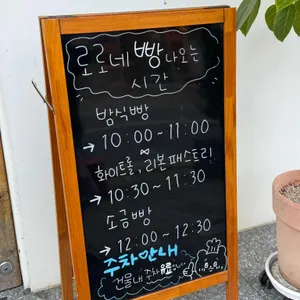 로로네 빵 나오는
시간
밤식빵
→ 10:00~11:00
화이트롤, 리본패스트리
→ 10:30~11:30
소금빵
→ 12:00~12:30
주차안내
건물내 주차